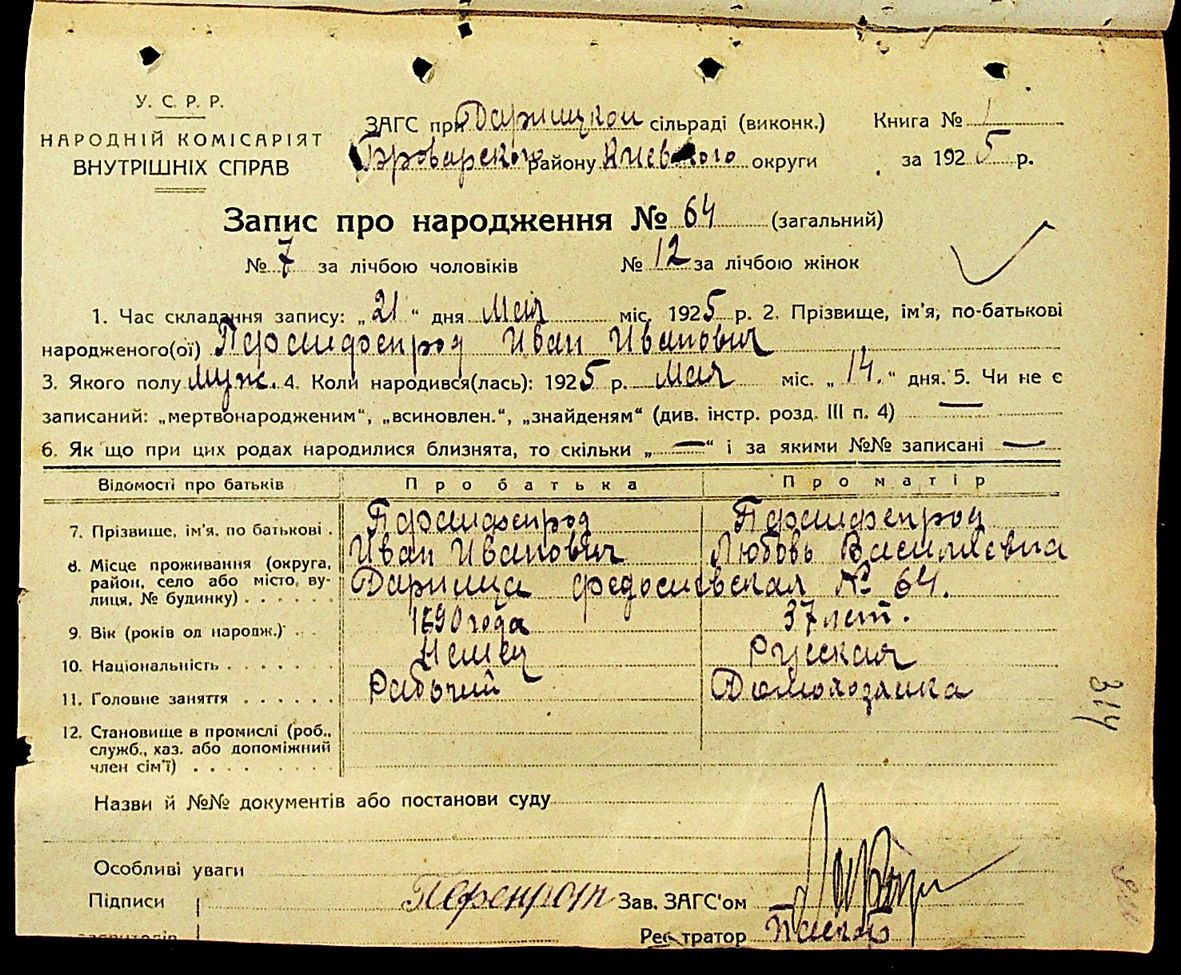 У. С. Р. Р.
НАРОДНІЙ КОМІСАРІЯТ
ВНУТРІШНІХ СПРАВ
ЗАГС при Дарницкой сільраді (виконк.)
Броварского району Киевского округи
Книга № 1
за 1925 р.
Запис про народження № 64 (загальний)
№ 7 за лічбою чоловіків № 12 за лічбою жінок
1. Час складання запису: „21“ дня Мая міс. 1925 р. 2. Прізвище, ім'я, по-батькові
народженого(ої) Иван Иванович
3. Якого полу муж. 4. Коли народився(лась): 1925 р. мая міс. „14.“ дня. 5. Чи не є
записаний: „мертвонародженим“, „всиновлен.“, „знайденям“ (див. інстр. розд. III п. 4) —
6. Як що при цих родах народилися близнята, то скільки „—“ і за якими №№ записані —
Відомості про батьків Про батька Про матір
7. Прізвище, ім'я, по батькові .
Иван Иванович Любовь Василиевна
8. Місце проживання (округа,
район, село або місто, ву-
лиця, № будинку) . . . . . Дарница № 64.
9. Вік (років од народж.) . . 1890 года 37 лет.
10. Національність . . . . . . Немец Русская
11. Головне заняття . . . . . . Рабочий Домохозяйка
12. Становище в промислі (роб.,
служб., хаз. або допоміжний
член сім'ї) . . . . . . . .
314
Назви й №№ документів або постанови суду
Особливі уваги
Підписи Зав. ЗАГС'ом
Реєстратор